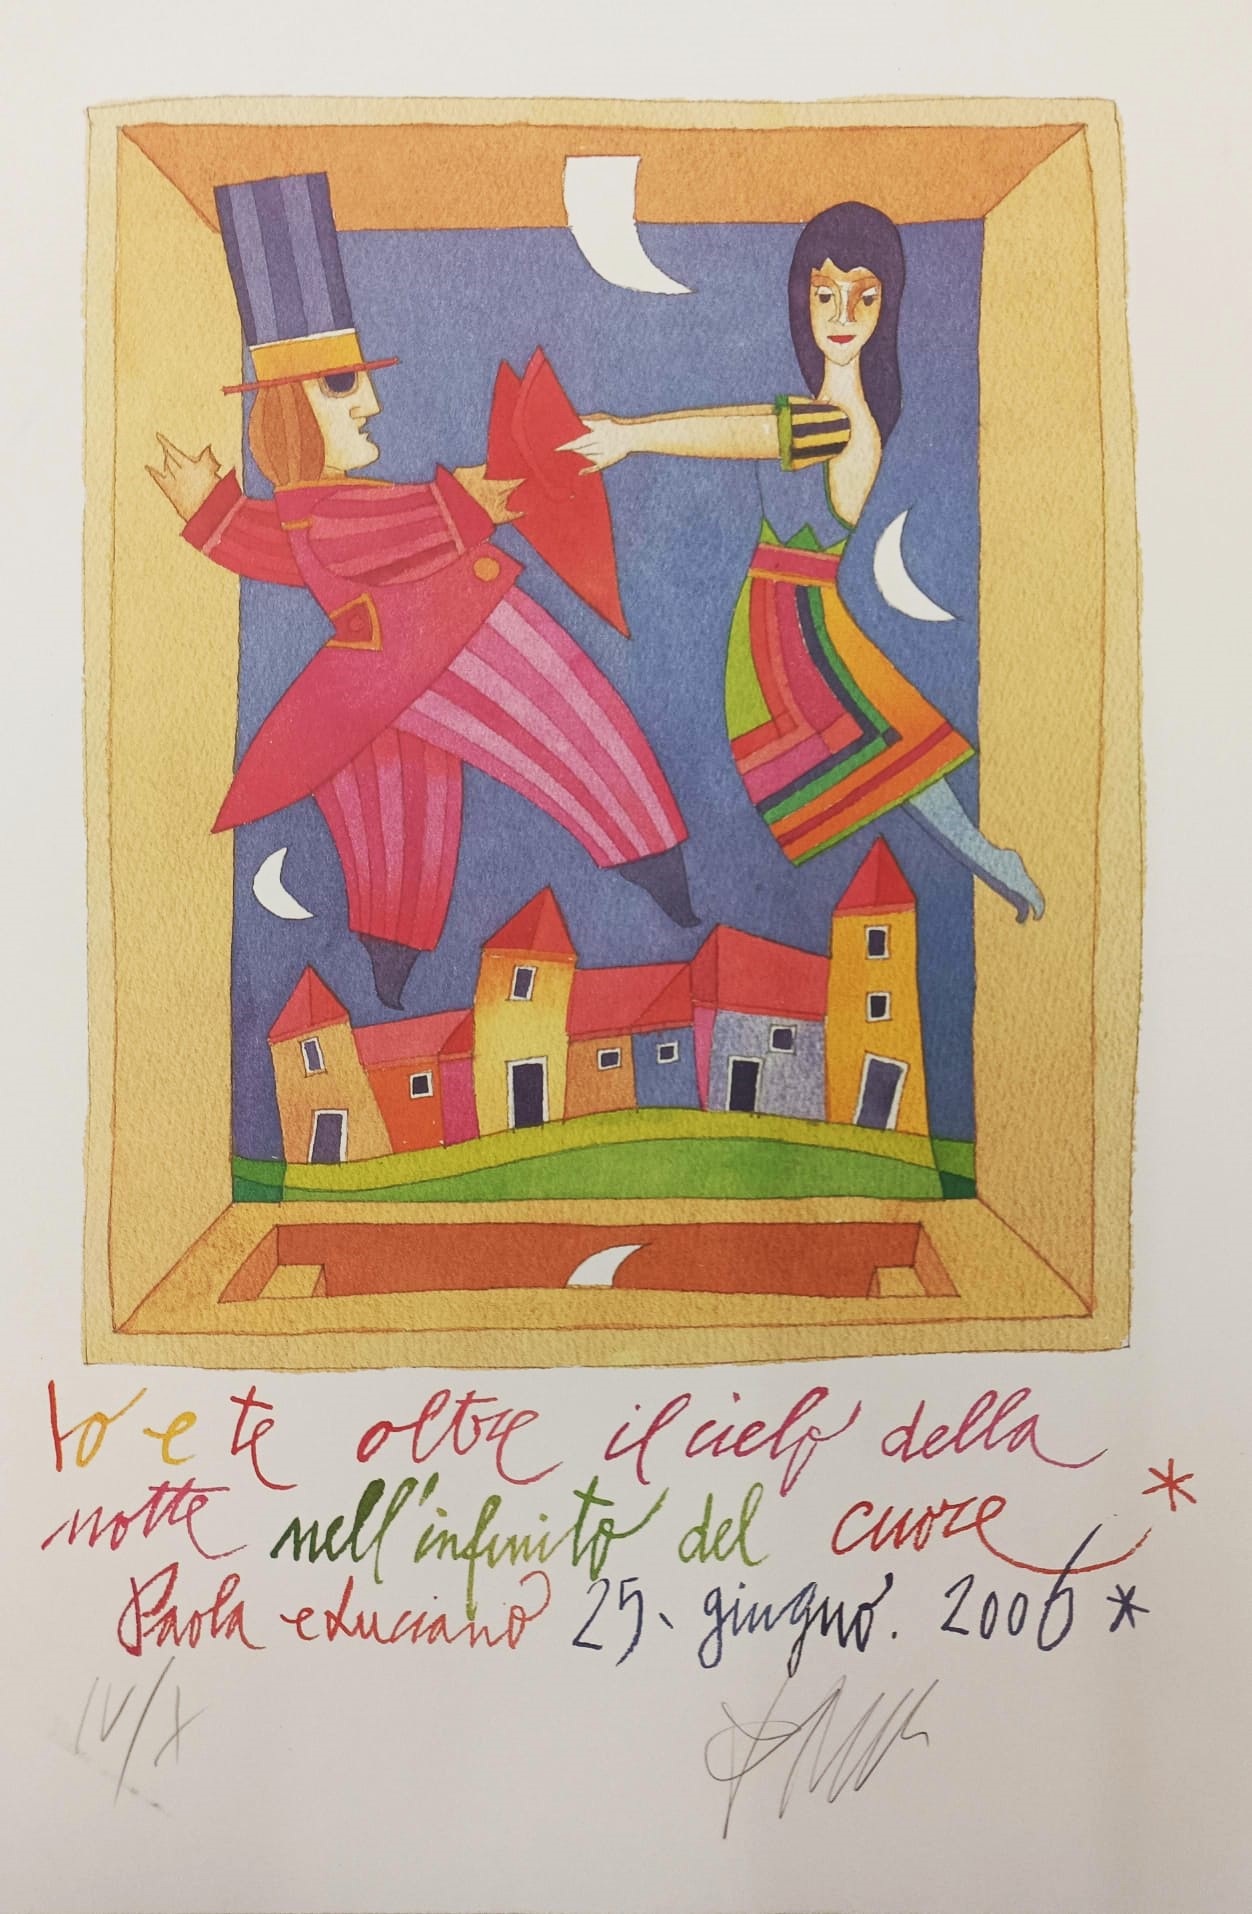 Io e te oltre il cielo della
notte nell'infinito del cuore *
Paola e Luciano 25. giugno. 2006 *
IV/X